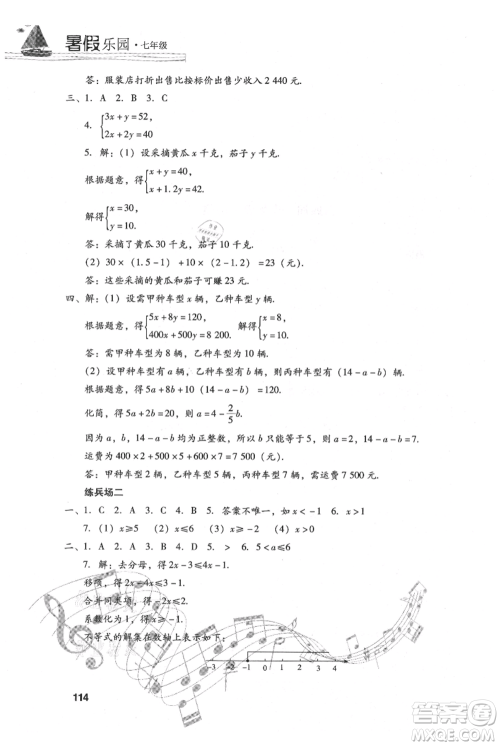 暑假乐园·七年级
答：服装店打折出售比按标价出售少收入 2 440 元.
三、1. A　2. B　3. C
4. {3x+y=52, 2x+2y=40
5. 解：(1) 设采摘黄瓜 x 千克，茄子 y 千克.
根据题意，得{x+y=40, x+1.2y=
解得{x=30, y=10.
答：采摘了黄瓜 30 千克，茄子 10 千克.
(2) 30×(1.5-1)+10×(2-1.2)=23(元).
答：这些采摘的黄瓜和茄子可赚 23 元.
四、解：(1) 设需甲种车型 x 辆，乙种车型 y 辆.
根据题意，得{5x+8y=120, 400x+500y=8 200. 解得{x=8, y=10.
答：需甲种车型为 8 辆，乙种车型为 10 辆.
(2) 设甲车型有 a 辆，乙车型有 b 辆，则丙车型有(14-a-b)辆.
根据题意，得 5a+8b+10(14-a-b)=120.
化简，得 5a+2b=20，即 a=4-2/5b.
因为 a，b，14-a-b 均为正整数，所以 b 只能等于 5，从而 a=2，14-a-b=7.
运费为 400×2+500×5+600×7=7 500(元).
答：甲种车型 2 辆，乙种车型 5 辆，丙种车型 7 辆，需运费 7 500 元.
练兵场二
一、1. C　2. A　3. C　4. B　5. 答案不唯一，如 x<-1　6. x>1
7. (1) x≥5　(2) x≤6　(3) x≤1　(4) x>0
二、1. B　2. A　3. B　4. D　5. >　6. 5<a≤6
7. 解：去分母，得 2x-4≤3x-3.
移项，得 2x-3x≤4-3.
合并同类项，得-x≤1.
系数化为 1，得 x≥-1.
不等式的解集在数轴上表示如下：
-3 -2 -1 0 1 2 3 4
114
答案圈
MXQE.COM